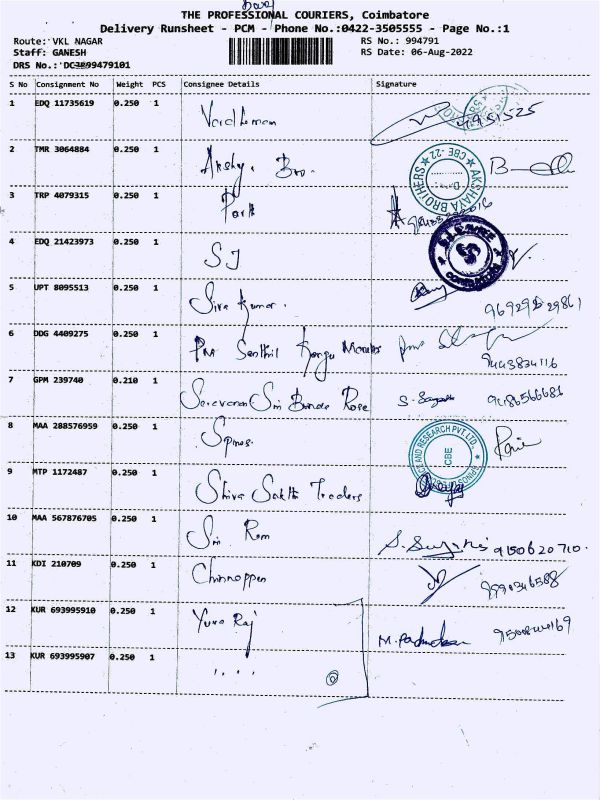 THE PROFESSIONAL COURIERS, Coimbatore
Delivery Runsheet - PCM - Phone No.:0422-3505555 - Page No.:1
Route: VKL NAGAR RS No.: 994791
Staff: GANESH RS Date: 06-Aug-2022
DRS No.: DC3E99479101
S No Consignment No Weight PCS Consignee Details Signature
1 EDQ 11735619 0.250 1 Vardhman
2 TMR 3064884 0.250 1 Akshy. Bro.
AKSHATA BROTHERS CBE-22
3 TRP 4079315 0.250 1 Park
4 EDQ 21423973 0.250 1 SJ
5 UPT 8095513 0.250 1 Siva Kumar.
6 DDG 4409275 0.250 1 PNR Senthil Kongu 9443834116
7 GPM 239740 0.210 1 Saravanan Sri 9486566681
8 MAA 288576959 0.250 1 Spinos.
AND RESEARCH PVT.LTD. CBE
9 MTP 1172487 0.250 1 Shiva Sakthi Traders
10 MAA 567876705 0.250 1 Sri Ram 9150620710.
11 KDI 210709 0.250 1 Chinnappan
12 KUR 693995910 0.250 1 Yuva Raj
13 KUR 693995907 0.250 1 " " " "